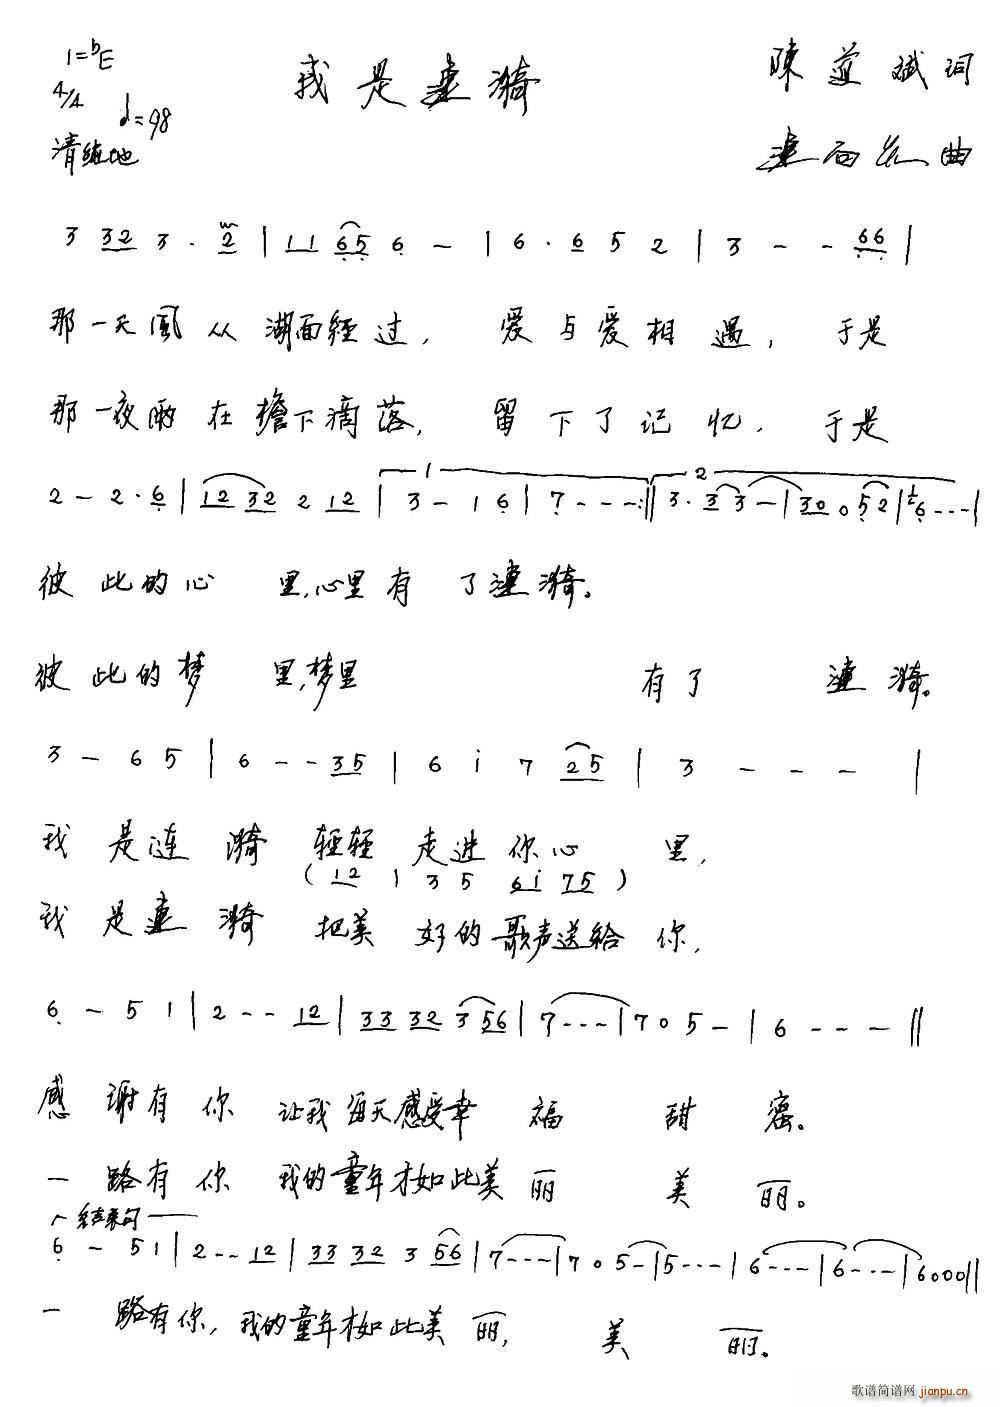 1=bE
我是涟漪
陳益斌词
4/4
♩=98
清纯地
连向东曲
3 32 3 · 2 | 11 65 6 — | 6 · 6 5 2 | 3 - - 66 |
那一天風从湖面經过, 爱与爱相遇, 于是
那一夜雨在檐下滴落, 留下了记忆, 于是
2 — 2 · 6 | 12 32 2 12 | 1 3 — 1 6 | 7 - - - :|| 2 3 · 3 3 — | 30 0 52 | 6 - - - |
彼此的心里,心里有了漣漪。
彼此的梦里,梦里有了漣漪。
3 — 6 5 | 6 - - 35 | 6 i 7 25 | 3 - - - |
我是涟漪轻轻走进你心里,
( 12 1 3 5 6i 75 )
我是連漪把美好的歌声送給你,
6 — 5 1 | 2 - - 12 | 33 32 3 56 | 7 - - - | 7 0 5 — | 6 - - - ||
感谢有你让我每天感受幸福甜密。
一路有你我的童年才如此美丽美丽。
结束句
6 — 5 1 | 2 - - 12 | 33 32 3 56 | 7 - - - | 7 0 5 — | 5 - - - | 6 - - - | 6 - - - | 6000 ||
一路有你,我的童年才如此美丽,美丽。
歌谱简谱网 jianpu.cn